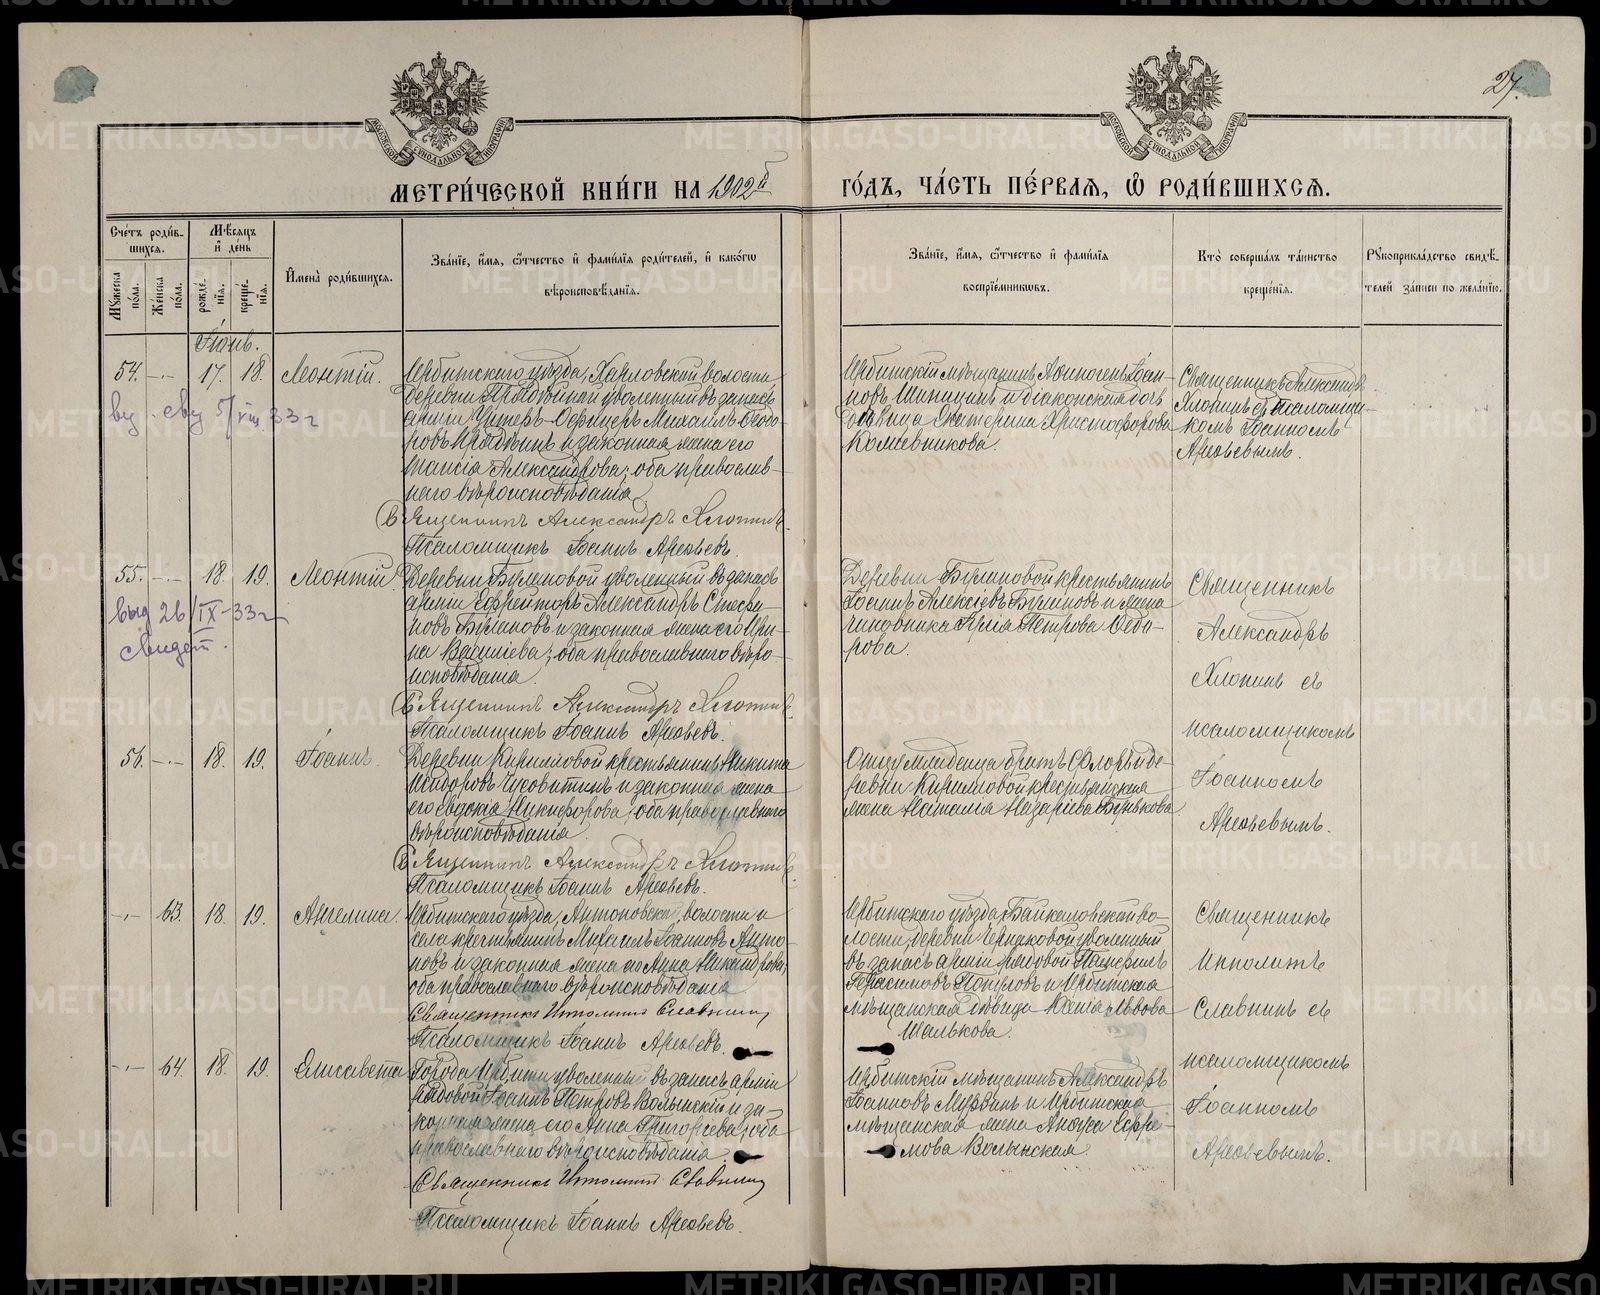 27.
МОСКОВСКОЙ СѴНОДАЛЬНОЙ ТИПОГРАФІИ
МОСКОВСКОЙ СѴНОДАЛЬНОЙ ТИПОГРАФІИ
МЕТРИ́ЧЕСКОЙ КНИ́ГИ НА 1902й
ГО́ДЪ, ЧА́СТЬ ПЕ́РВАѦ, Ѡ҆ РОДИ́ВШИХСѦ.
Сче́тъ роди́в-
шихся.
Мꙋ́жеска по́ла.
Же́нска по́ла.
Мѣ́сяцъ и҆ де́нь
рожде́нїѧ.
креще́нїѧ.
И҆мена̀ роди́вшихсѧ.
Зва́нїе, и҆́мѧ, ѻ҆́тчество и҆ фами́лїѧ роди́телей, и҆ како́гѡ
вѣроисповѣ́данїѧ.
Зва́нїе, и҆́мѧ, ѻ҆́тчество и҆ фами́лїѧ
воспрїе́мникѡвъ.
Кто̀ соверша́лъ та́инство
креще́нїѧ.
Рꙋкоприкла́дство свидѣ́-
телей за́писи по жела́нїю.
Іюнь.
54. -.- 17. 18. Леонтій.
Ирбитскаго уѣзда, Харловской волости
деревни уволенный въ запасъ
арміи Унтеръ-Офицеръ Михаилъ Ѳеодо-
ровъ и законная жена его
Таисія Александрова; оба православ-
наго вѣроисповѣданія.
Священникъ Александръ Хлопинъ.
Псаломщикъ Іоаннъ Арефьевъ.
Ирбитскій мѣщанинъ Аѳиногенъ Іоан-
новъ Шиницинъ и діаконская дочь
дѣвица Екатерина Христофорова
Кожевникова.
Священникъ Александръ
Хлопинъ съ псаломщи-
комъ Іоанномъ
Арефьевымъ.
55. -.- 18. 19. Леонтій.
выд 26/IX-33г
свидет.
Деревни Булановой уволенный въ запасъ
арміи Ефрейторъ Александръ Стефа-
новъ Булановъ и законная жена его Ири-
на Василіева; оба православнаго вѣро-
исповѣданія.
Священникъ Александръ Хлопинъ.
Псаломщикъ Іоаннъ Арефьевъ.
Деревни Булановой крестьянинъ
Іоаннъ Алексіевъ Булановъ и жена
чиновника Юлія Петрова Ѳедо-
рова.
Священникъ
Александръ
Хлопинъ съ
псаломщикомъ
Іоанномъ
Арефьевымъ.
56. -.- 18. 19. Іоаннъ.
Деревни Кирилловой крестьянинъ Никита
Исидоровъ Чусовитинъ и законная жена
его Евдокія Никифорова; оба православнаго
вѣроисповѣданія.
Священникъ Александръ Хлопинъ.
Псаломщикъ Іоаннъ Арефьевъ.
Отцу младенца братъ Флоръ и де-
ревни Кирилловой крестьянская
жена Наталія Назаріева Бунькова.
-.- 63. 18. 19. Ангелина.
Ирбитскаго уѣзда, Антоновской, волости и
села крестьянинъ Михаилъ Іоанновъ Анто-
новъ и законная жена его Анна Никандрова;
оба православнаго вѣроисповѣданія.
Священникъ Ипполитъ Славнинъ
Псаломщикъ Іоаннъ Арефьевъ.
Ирбитскаго уѣзда, Байкаловской во-
лости, деревни Чернаковой уволенный
въ запасъ арміи рядовой Памфилъ
Герасимовъ Популовъ и Ирбитская
мѣщанская дѣвица Ксенія Львова
Шалькова.
Священникъ
Ипполитъ
Славнинъ съ
псаломщикомъ
Іоанномъ
Арефьевымъ.
-.- 64. 18. 19. Елисавета
Города Ирбити уволенный въ запасъ арміи
рядовой Іоаннъ Петровъ Волынскій и за-
конная жена его Анна Григоріева; оба
православнаго вѣроисповѣданія.
Священникъ Ипполитъ Славнинъ
Псаломщикъ Іоаннъ Арефьевъ.
Ирбитскій мѣщанинъ Александръ
Іоанновъ Мурзинъ и Ирбитская
мѣщанская жена Анѳуса Ефре-
мова Волынская.
METRIKI.GASO-URAL.RU